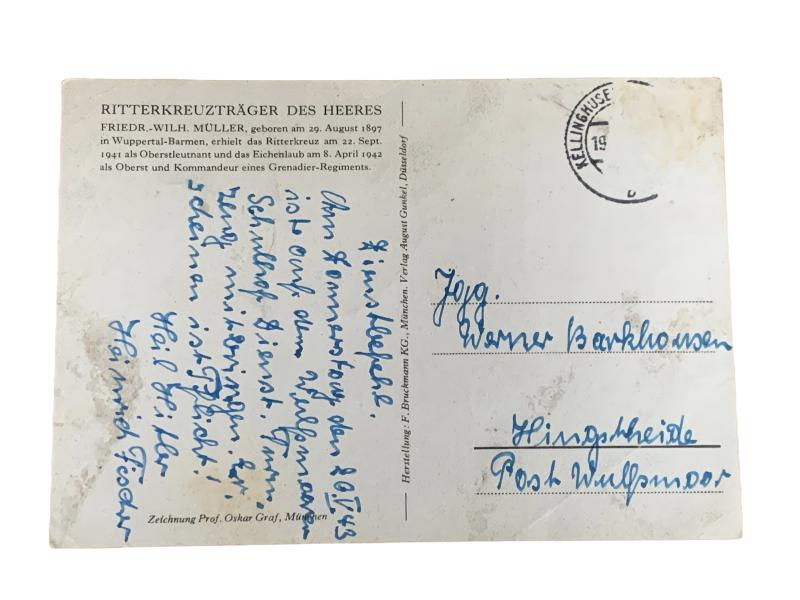 RITTERKREUZTRÄGER DES HEERES
FRIEDR.-WILH. MÜLLER, geboren am 29. August 1897
in Wuppertal-Barmen, erhielt das Ritterkreuz am 22. Sept.
1941 als Oberstleutnant und das Eichenlaub am 8. April 1942
als Oberst und Kommandeur eines Grenadier-Regiments.
Dienstbefehl.
Am Donnerstag, den 20 V 43
ist auf dem Wulfsmoorer
Schulhof Dienst. Turn-
zeug mitbringen. Er-
scheinen ist Pflicht!
Heil Hitler
Heinrich Fischer
Zeichnung Prof. Oskar Graf, München
Herstellung: F. Bruckmann KG., München. Verlag August Gunkel, Düsseldorf
KELLINGHUSE
19
Jgg.
Werner Barkhousen
Hingstheide
Post Wulfsmoor